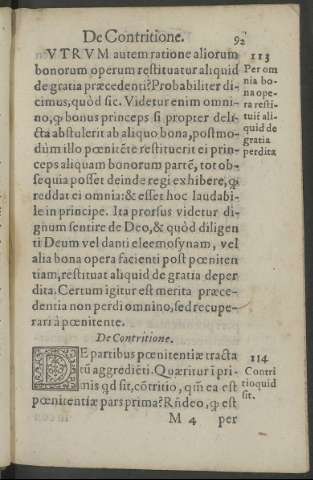 De Contritione. 92
VTRVM autem ratione aliorum
bonorum operum restituatur aliquid
de gratia præcedenti? Probabiliter di-
cimus, quòd sic. Videtur enim omni-
no, ꝙ bonus princeps si propter deli-
cta abstulerit ab aliquo bona, postmo-
dùm illo pœnitēte restituerit ei prin-
ceps aliquam bonorum partē, tot ob-
sequia posset deinde regi exhibere, ꝙ
reddat ei omnia: & esset hoc laudabi-
le in principe. Ita prorsus videtur di-
gnum sentire de Deo, & quòd diligen
ti Deum vel danti eleemosynam, vel
alia bona opera facienti post pœniten
tiam, restituat aliquid de gratia deper
dita. Certum igitur est merita præce-
dentia non perdi omnino, sed recupe-
rari à pœnitente.
113
Per om
nia bo-
na ope-
ra resti-
tuit ali-
quid de
gratia
perdita
De Contritione.
DE partibus pœnitentiæ tracta
tū aggrediēti. Quæritur ī pri-
mis qd sit, cōtritio, quā ea est
pœnitentiæ pars prima? Rñdeo, ꝙ est
114
Contri
tio quid
sit.
M 4 per